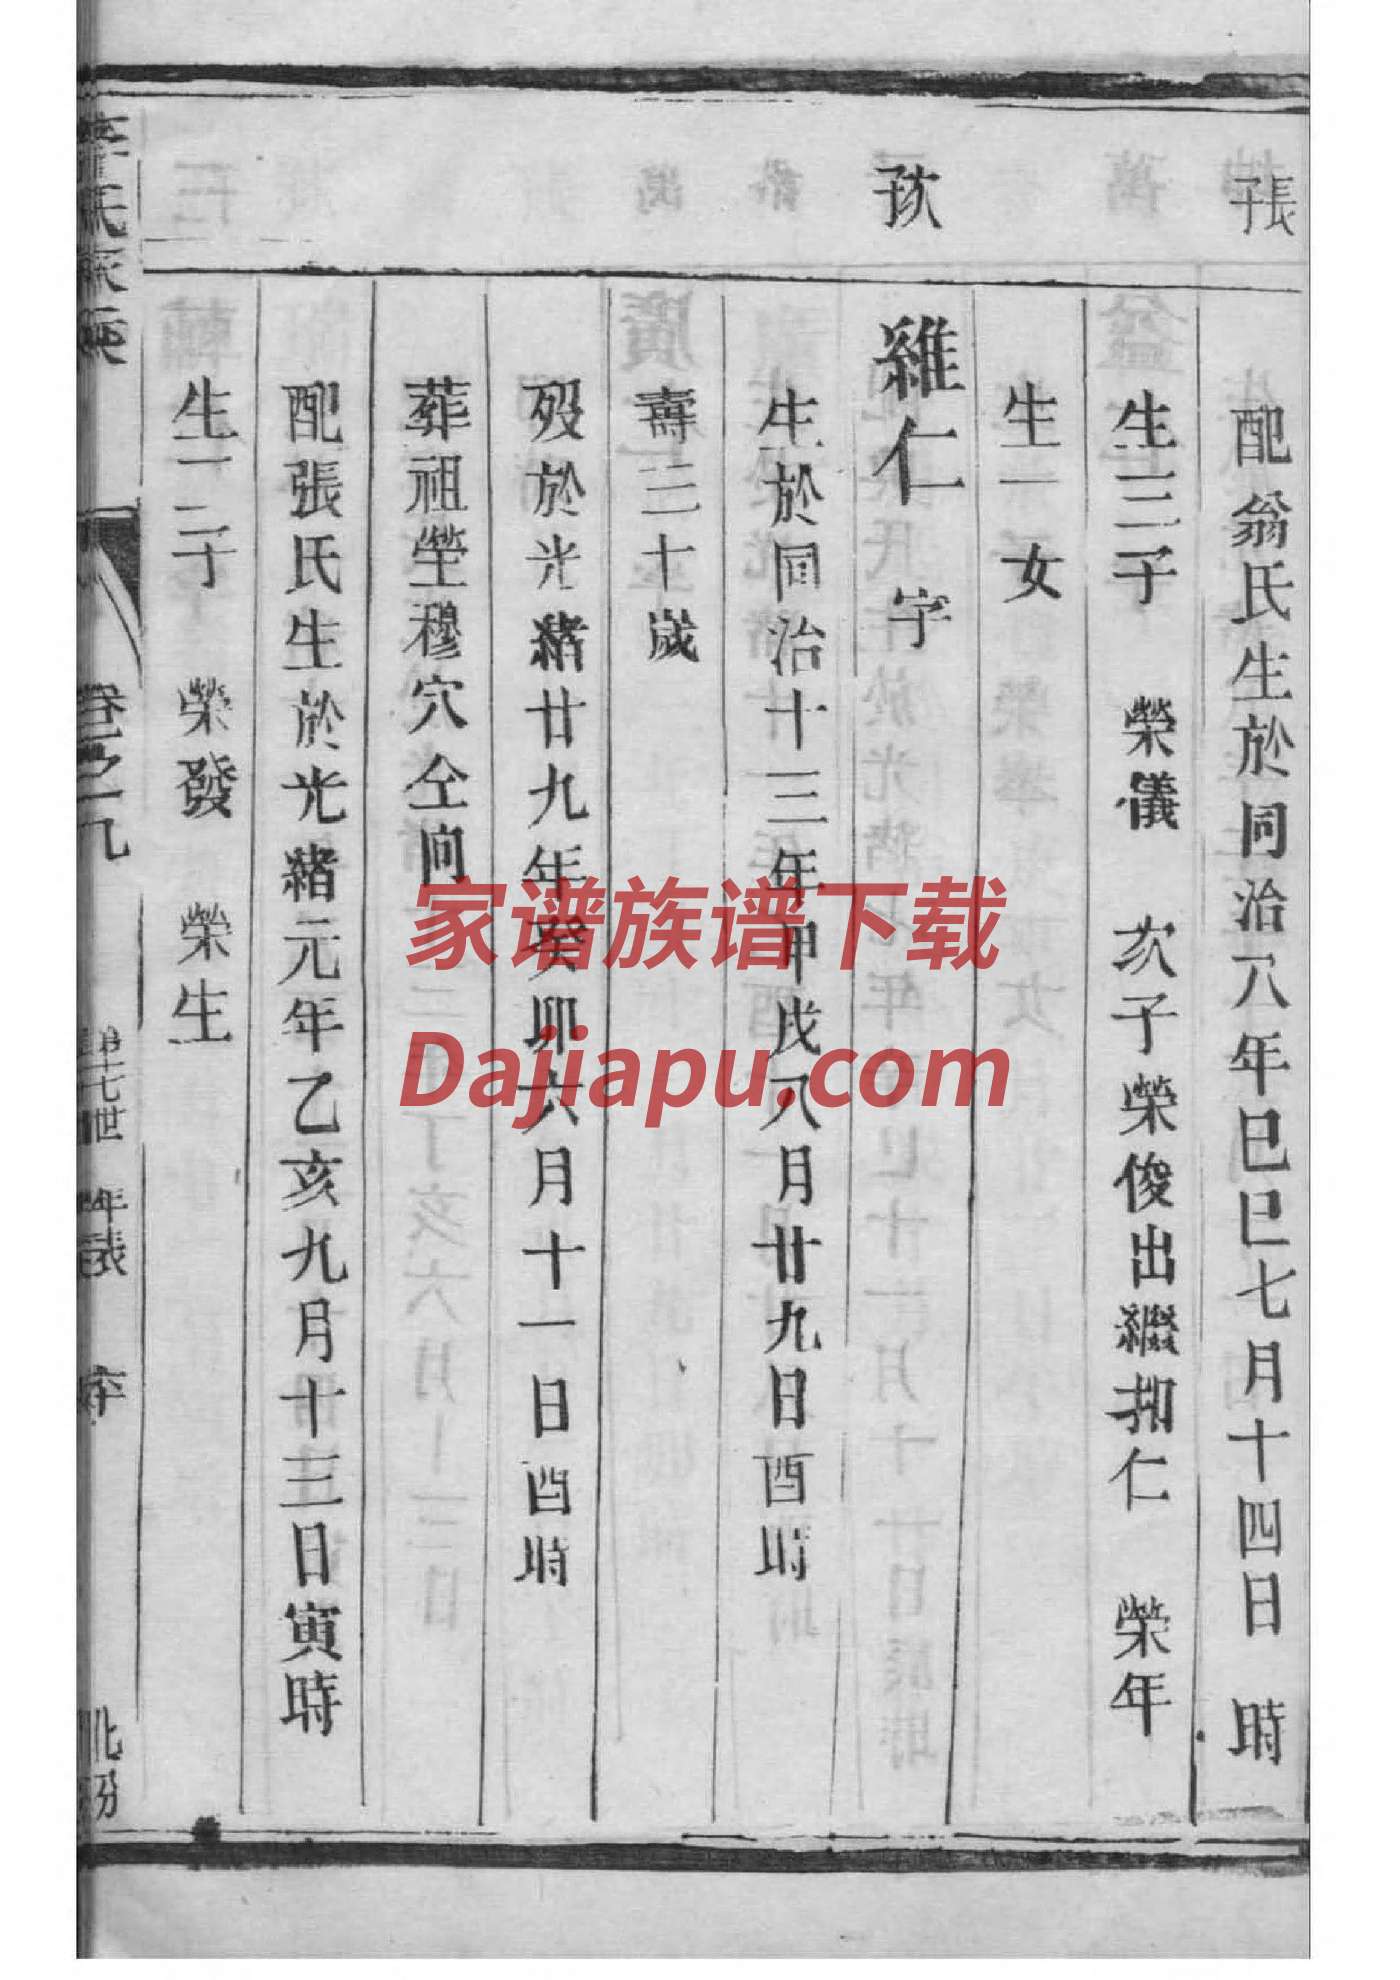 長子
配翁氏生於同治八年己巳七月十四日 時
生三子 榮儀 次子榮俊出繼拁仁 榮年
生一女
次子
維仁 字
生於同治十三年甲戌八月廿九日酉時
壽三十歲
歿於光緒廿九年癸卯六月十一日酉時
葬祖塋穆穴仝向
配張氏生於光緒元年乙亥九月十三日寅時
生二子 榮發 榮生
卷之九
年表
家谱族谱下载
Dajiapu.com